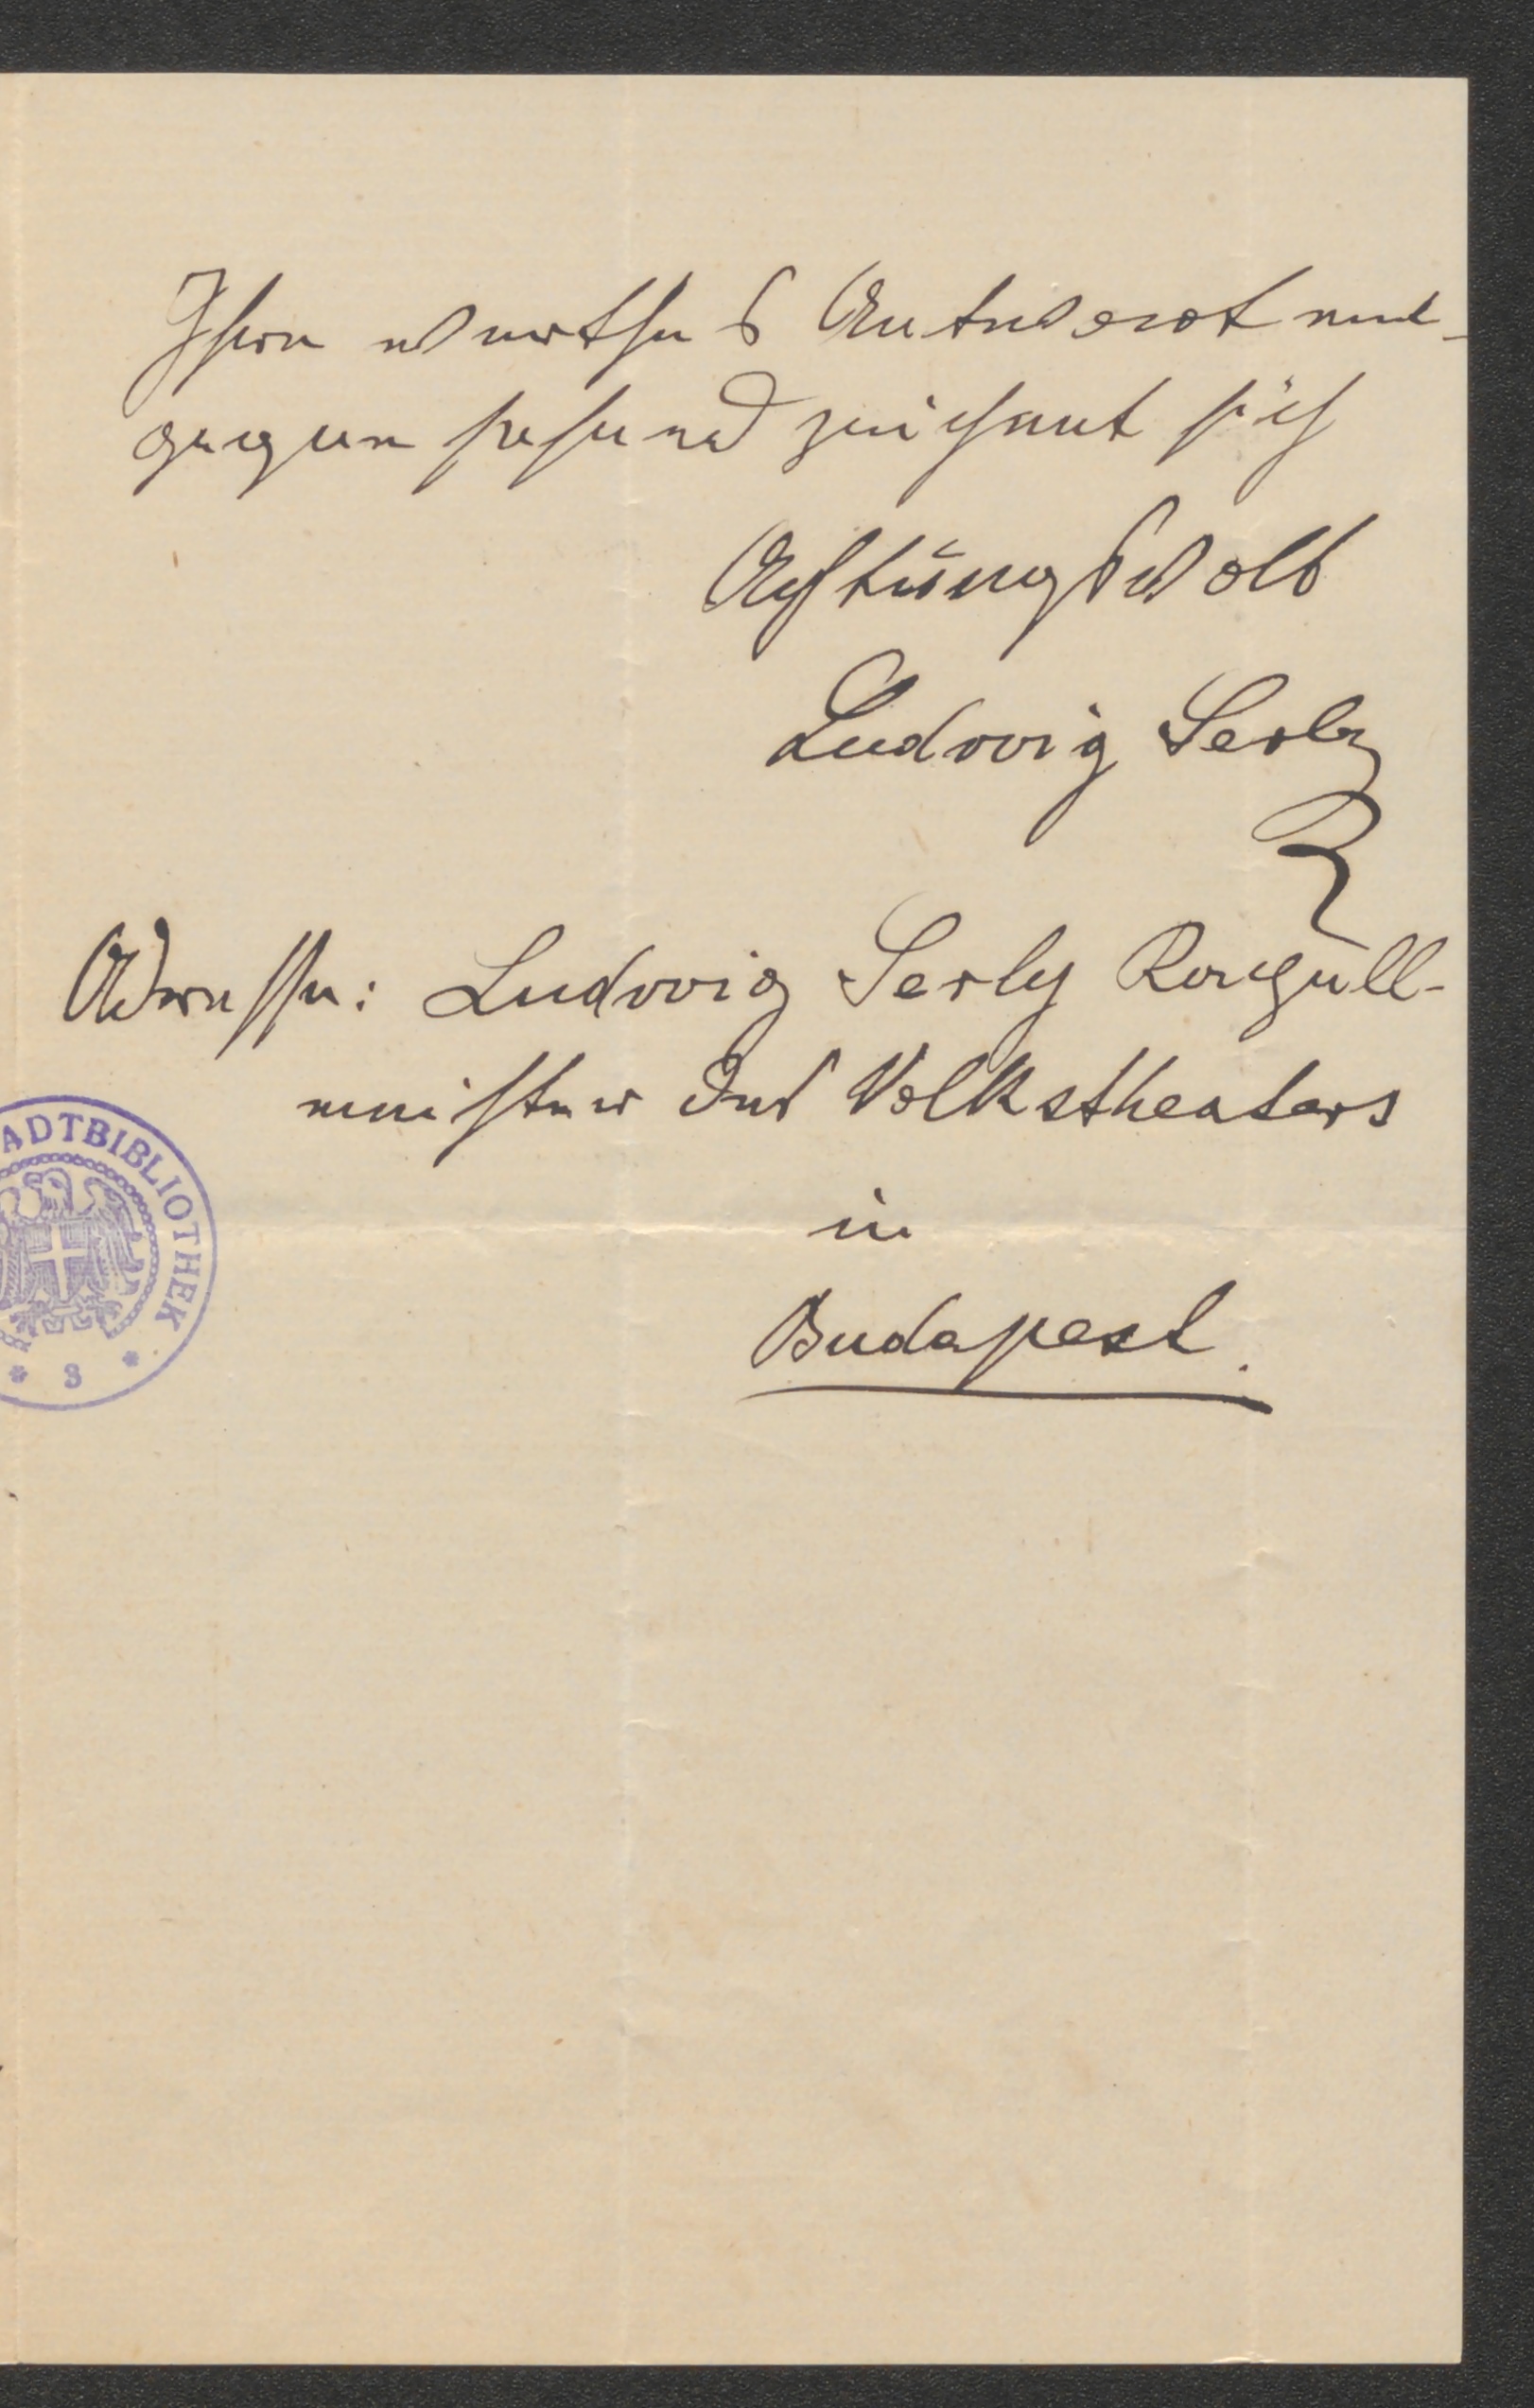 Ihrer werthes Antwort ent-
gegen sehend zeichnet sich
Achtungsvoll
Ludwig Serly
Adresse: Ludwig Serly Kapell-
meister des Volkstheaters
in
Budapest.
ADTBIBLIOTHEK
* 3 *